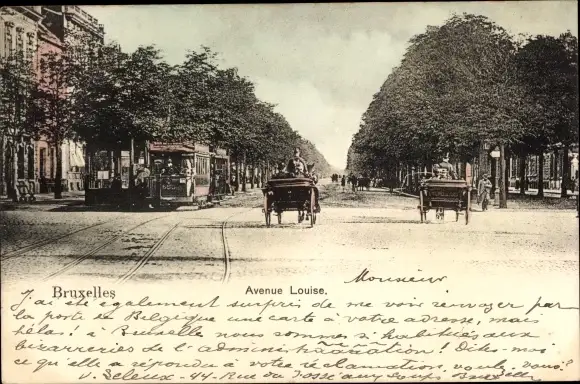 Bruxelles
Avenue Louise.
Monsieur
J'ai été également surpris de me voir renvoyer par
la poste de Belgique une carte à votre adresse, mais
hélas! à Bruxelles nous sommes si habitués aux
bizarreries de l'administration! Dites-moi
ce qu'elle a répondu à votre réclamation, voulez vous?
44. Rue du Fossé aux Loups Bruxelles